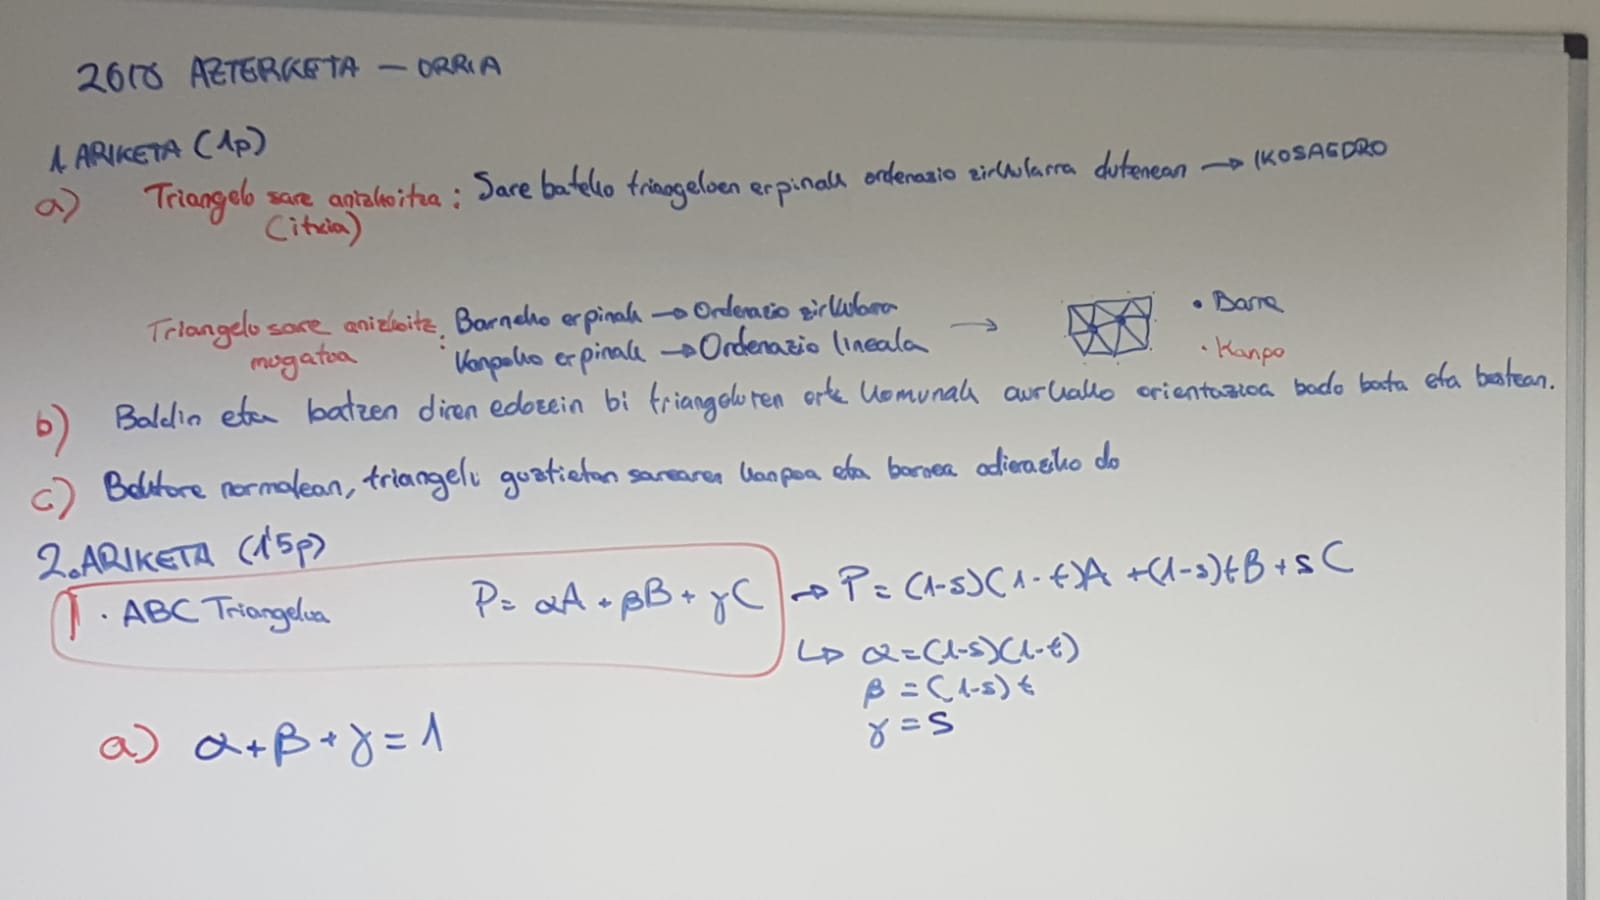 2018 AZTERKETA — ORRIA
1. ARIKETA (1p)
a) Triangelo sare anizkoitza : Sare bateko triangeloen erpinak ordenazio zirkularra dutenean → IKOSAEDRO
(itxia)
Triangelu sare anizkoitz : Barneko erpinak → Ordenazio zirkularra →
mugatua Kanpoko erpinak → Ordenazio lineala
• Barne
• Kanpo
b) Baldin eta batzen diren edozein bi triangeluren ertz komunak aurkako orientazioa badu bata eta bestean.
c) Bektore normalean, triangelu guztietan sarearen kanpoa eta barnea adieraziko du
2. ARIKETA (1'5p)
· ABC Triangelua P = αA + βB + γC → P = (1-s)(1-t)A + (1-s)tB + sC
↳ α = (1-s)(1-t)
β = (1-s)t
γ = s
a) α + β + γ = 1